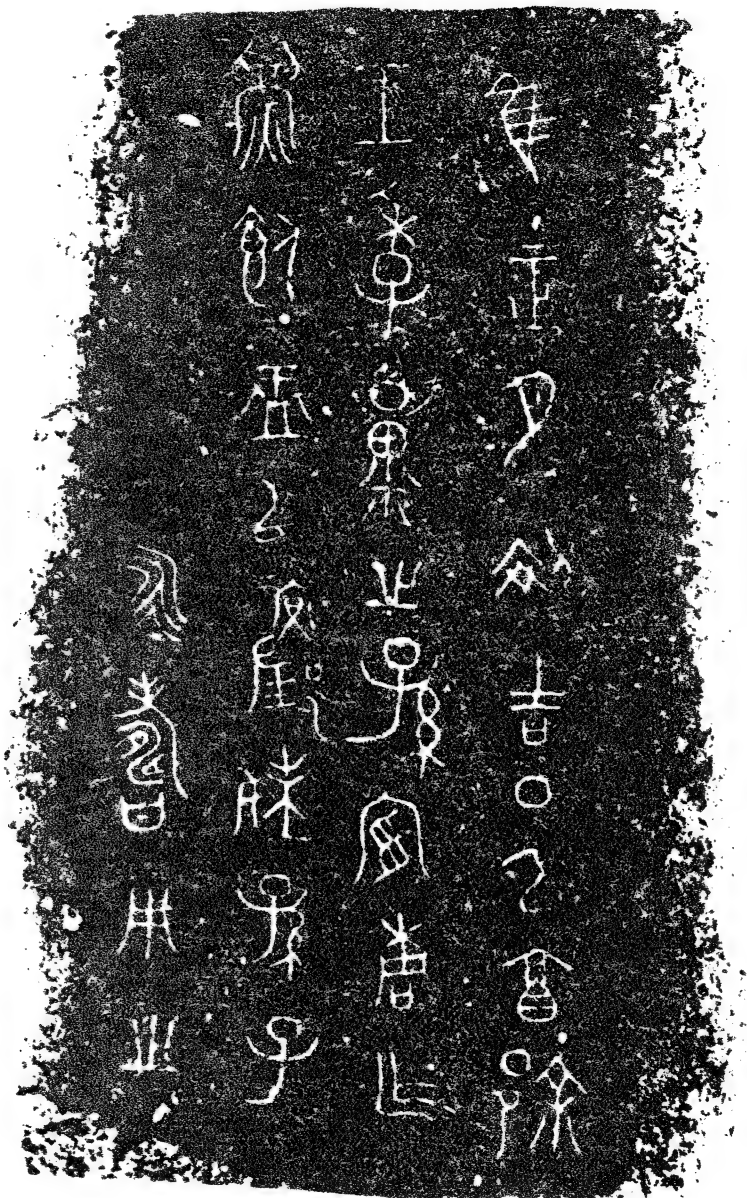 隹正月初吉日己酉䣄
王季糧之孫宜桐乍
鑄飤盂㠯媵妹孫子
永壽用之